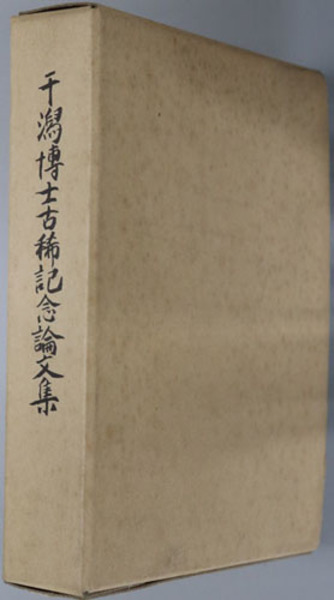 干潟博士古稀記念論文集